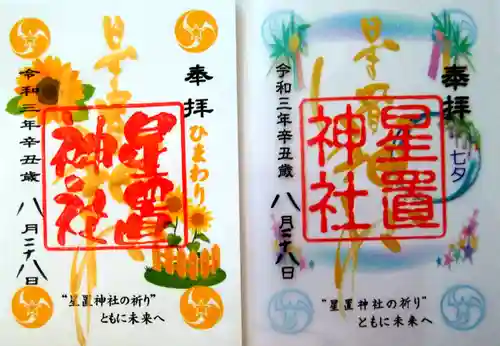 奉拝
ひまわり
星置
神社
令和三年辛丑歳
八月二十八日
"星置神社の祈り"
ともに未来へ
奉拝
七夕
星置
神社
令和三年辛丑歳
八月二十八日
"星置神社の祈り"
ともに未来へ